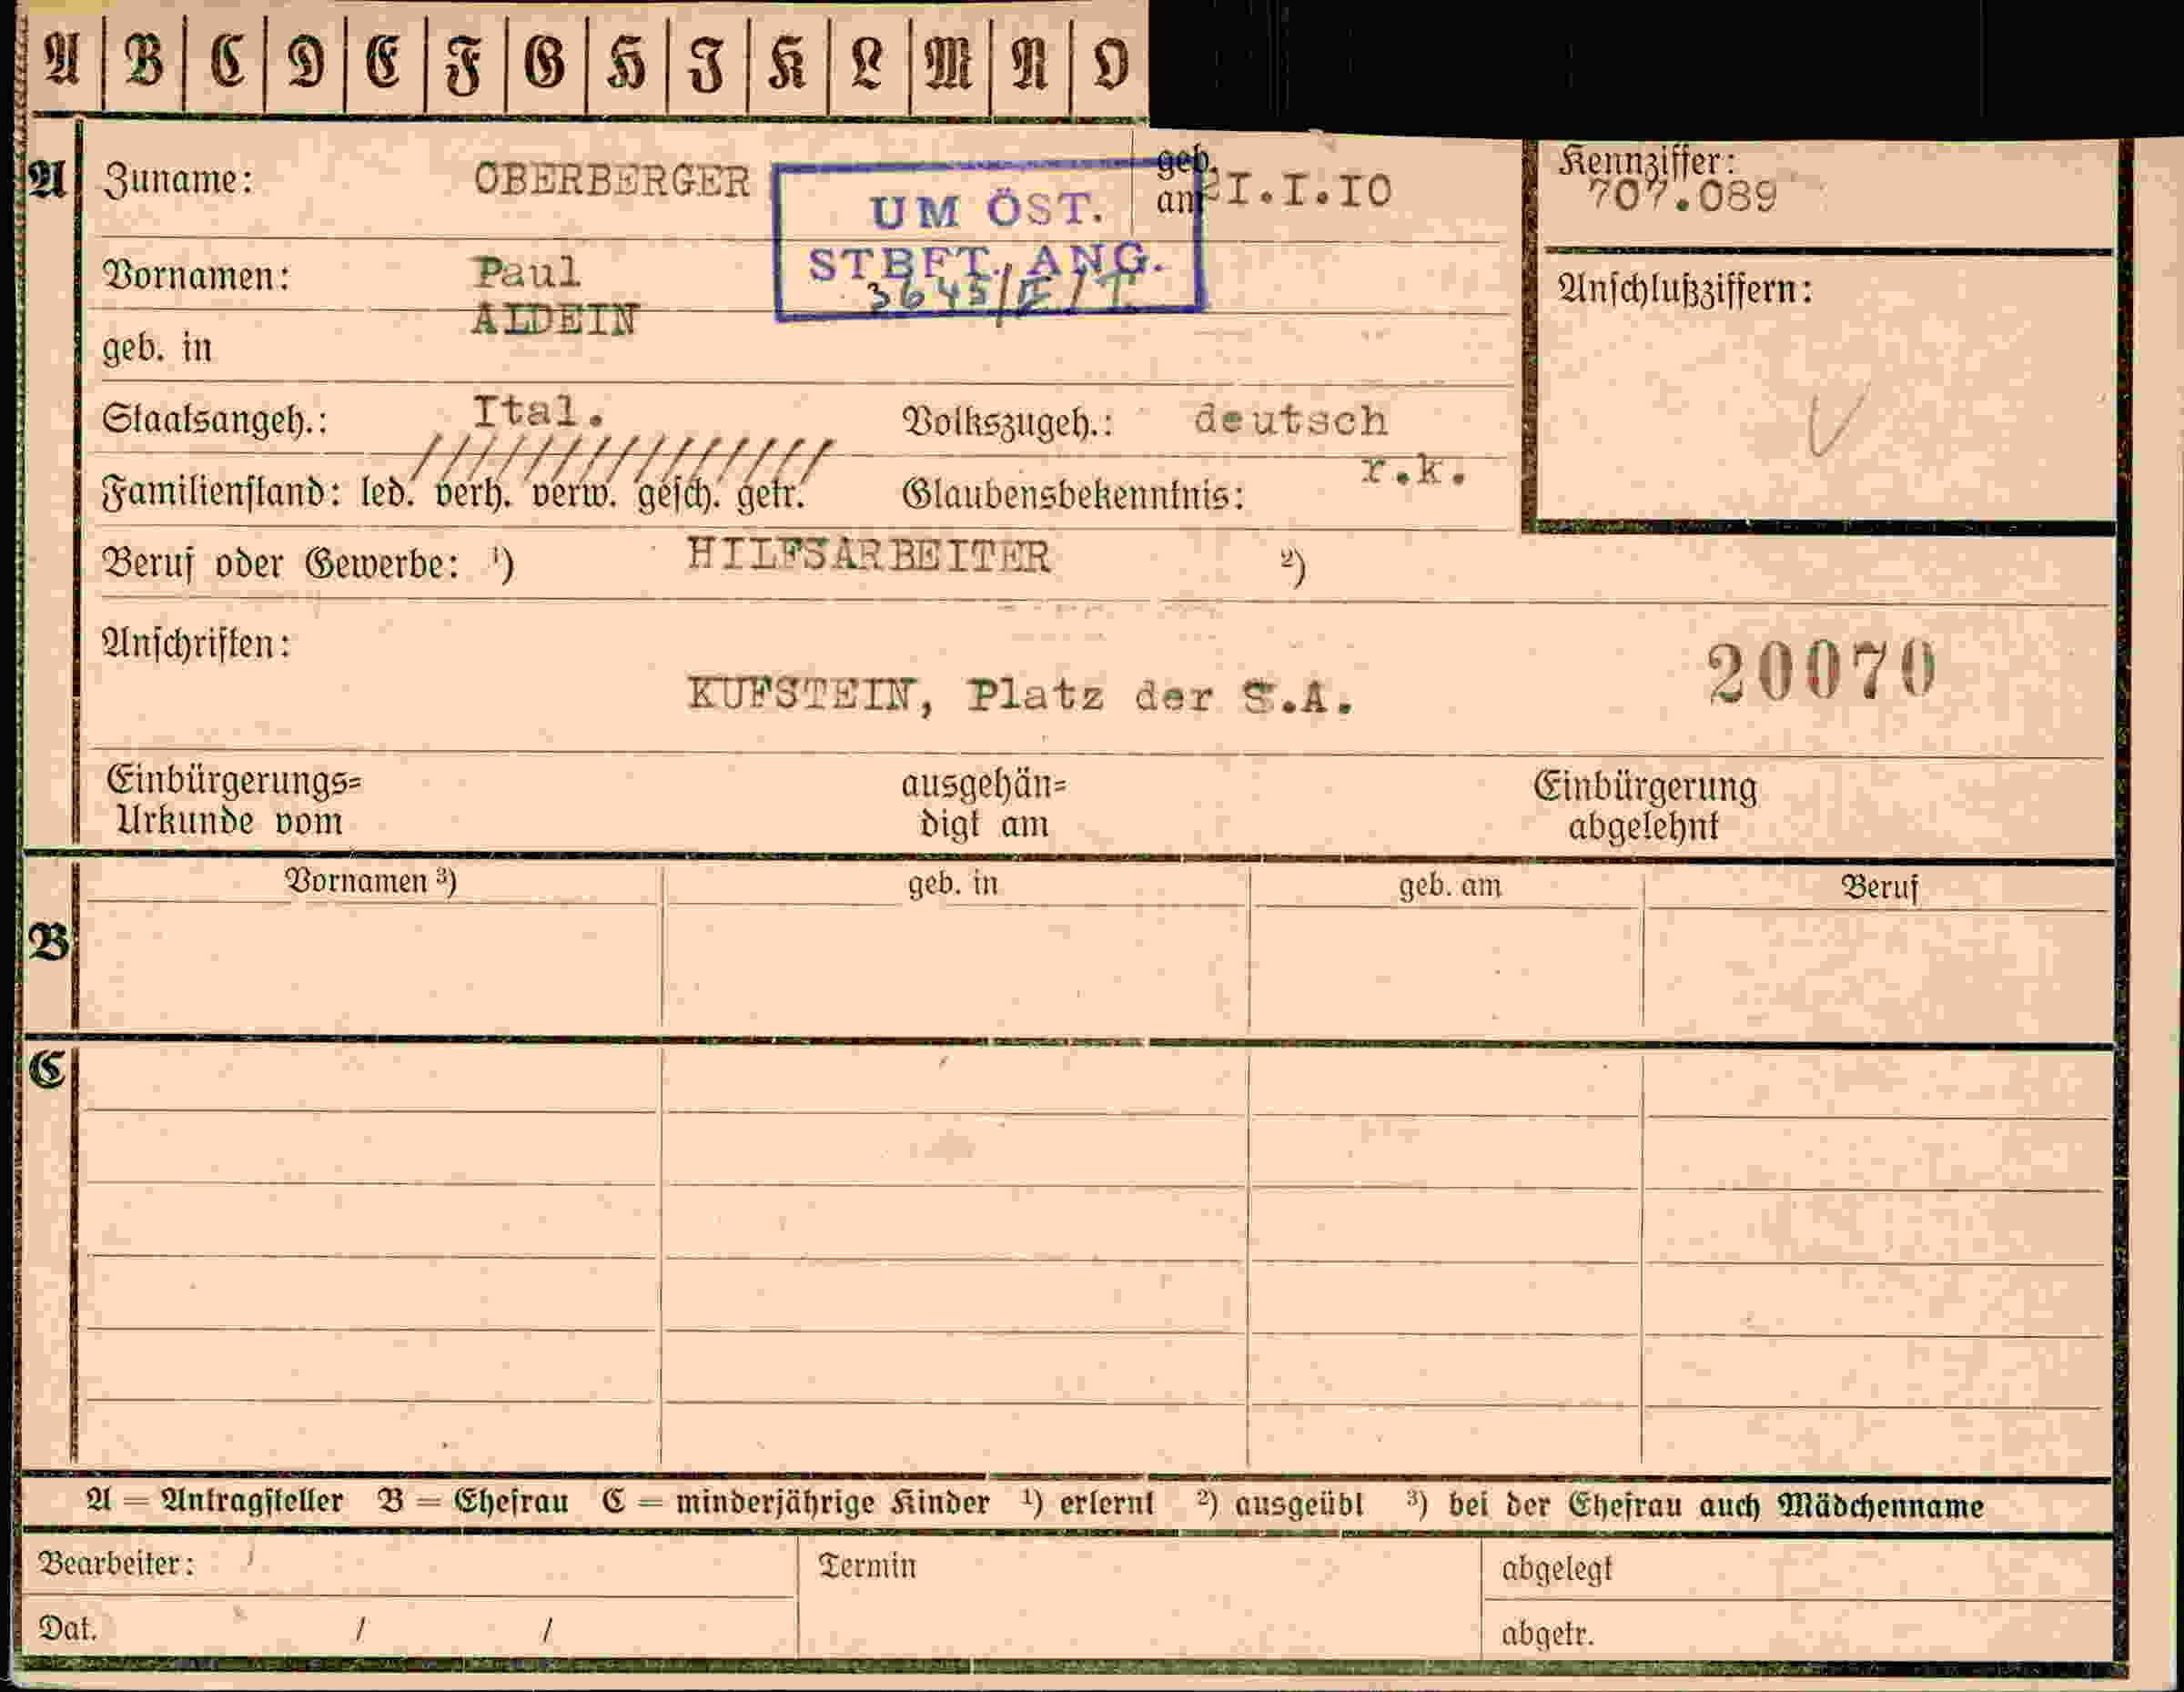 A B C D E F G H J K L M N O
A Zuname: OBERBERGER geb. am 21.I.I0 Kennziffer: 707.089
UM ÖST.
STBFT. ANG.
Vornamen: Paul Anschlußziffern:
geb. in ALDEIN
Staatsangeh.: Ital. Volkszugeh.: deutsch
Familienstand: led. verh. verw. gesch. getr. Glaubensbekenntnis: r.k.
Beruf oder Gewerbe: ¹) HILFSARBEITER ²)
Anschriften: 20070
KUFSTEIN, Platz der S.A.
Einbürgerungs= ausgehän= Einbürgerung
Urkunde vom digt am abgelehnt
B Vornamen ³) geb. in geb. am Beruf
C
A = Antragsteller B = Ehefrau C = minderjährige Kinder ¹) erlernt ²) ausgeübt ³) bei der Ehefrau auch Mädchenname
Bearbeiter: Termin abgelegt
Dat. / / abgetr.